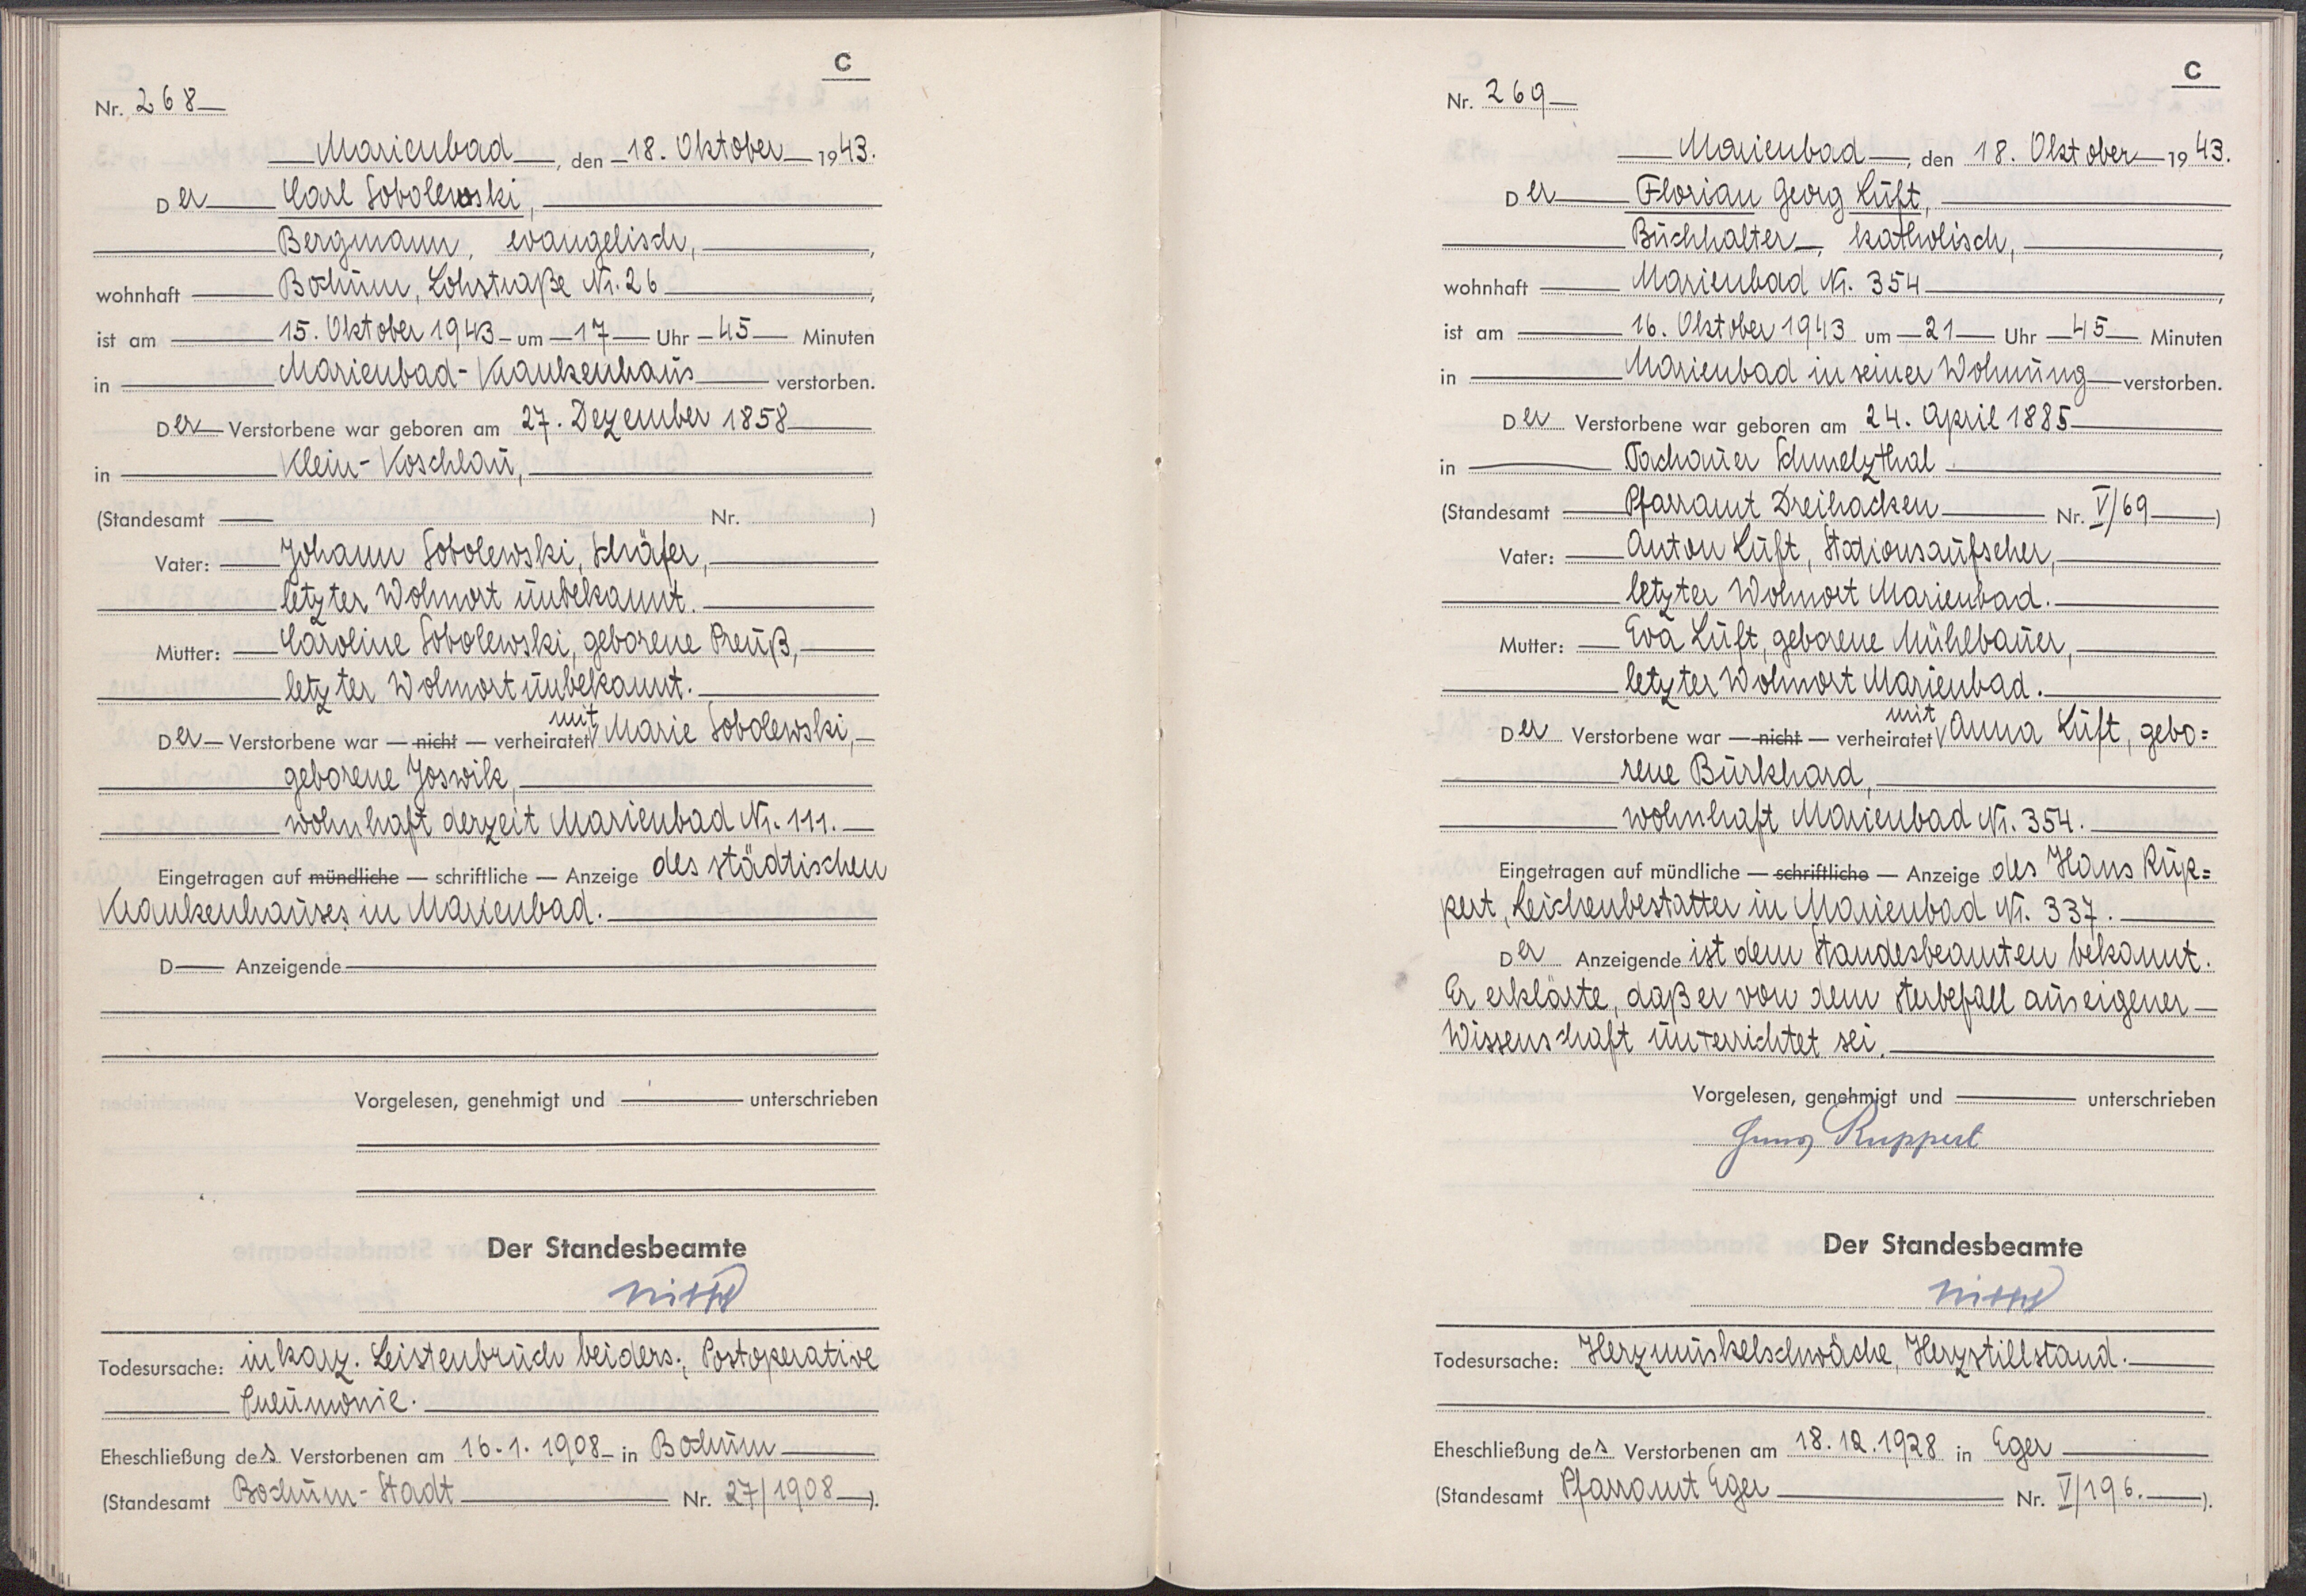 C
Nr. 268
Marienbad, den 18. Oktober 1943.
Der Carl Sobolewski,
Bergmann, evangelisch,
wohnhaft Bochum, Lohstraße Nr. 26,
ist am 15. Oktober 1943 um 17 Uhr 45 Minuten
in Marienbad-Krankenhaus verstorben.
Der Verstorbene war geboren am 27. Dezember 1858
in Klein-Koschlau,
(Standesamt — Nr. )
Vater: Johann Sobolewski, Schäfer,
letzter Wohnort unbekannt.
Mutter: Caroline Sobolewski, geborene Preuß,
letzter Wohnort unbekannt.
Der Verstorbene war — nicht — verheiratet mit Marie Sobolewski,
geborene Joswik,
wohnhaft derzeit Marienbad Nr. 111.
Eingetragen auf mündliche — schriftliche — Anzeige des städtischen
Krankenhauses in Marienbad.
D— Anzeigende
Vorgelesen, genehmigt und — unterschrieben
Der Standesbeamte
Todesursache: inkarz. Leistenbruch beiders., Postoperative
Pneumonie.
Eheschließung des Verstorbenen am 16.1.1908 in Bochum
(Standesamt Bochum-Stadt Nr. 27/1908).
C
Nr. 269
Marienbad, den 18. Oktober 1943.
Der Florian Georg Luft,
Buchhalter, katholisch,
wohnhaft Marienbad Nr. 354,
ist am 16. Oktober 1943 um 21 Uhr 45 Minuten
in Marienbad in seiner Wohnung verstorben.
Der Verstorbene war geboren am 24. April 1885
in Tachauer Schmelzthal
(Standesamt Pfarramt Dreihacken Nr. V/69)
Vater: Anton Luft, Stationsaufseher,
letzter Wohnort Marienbad.
Mutter: Eva Luft, geborene Mühlbauer,
letzter Wohnort Marienbad.
Der Verstorbene war — nicht — verheiratet mit Anna Luft, gebo=
rene Burkhard,
wohnhaft Marienbad Nr. 354.
Eingetragen auf mündliche — schriftliche — Anzeige des Hans Rup=
pert, Leichenbestatter in Marienbad Nr. 337.
Der Anzeigende ist dem Standesbeamten bekannt.
Er erklärte, daß er von dem Sterbefall aus eigener
Wissenschaft unterrichtet sei.
Vorgelesen, genehmigt und — unterschrieben
Hans Ruppert
Der Standesbeamte
Todesursache: Herzmuskelschwäche, Herzstillstand.
Eheschließung des Verstorbenen am 18.12.1928 in Eger
(Standesamt Pfarramt Eger Nr. V/196.).